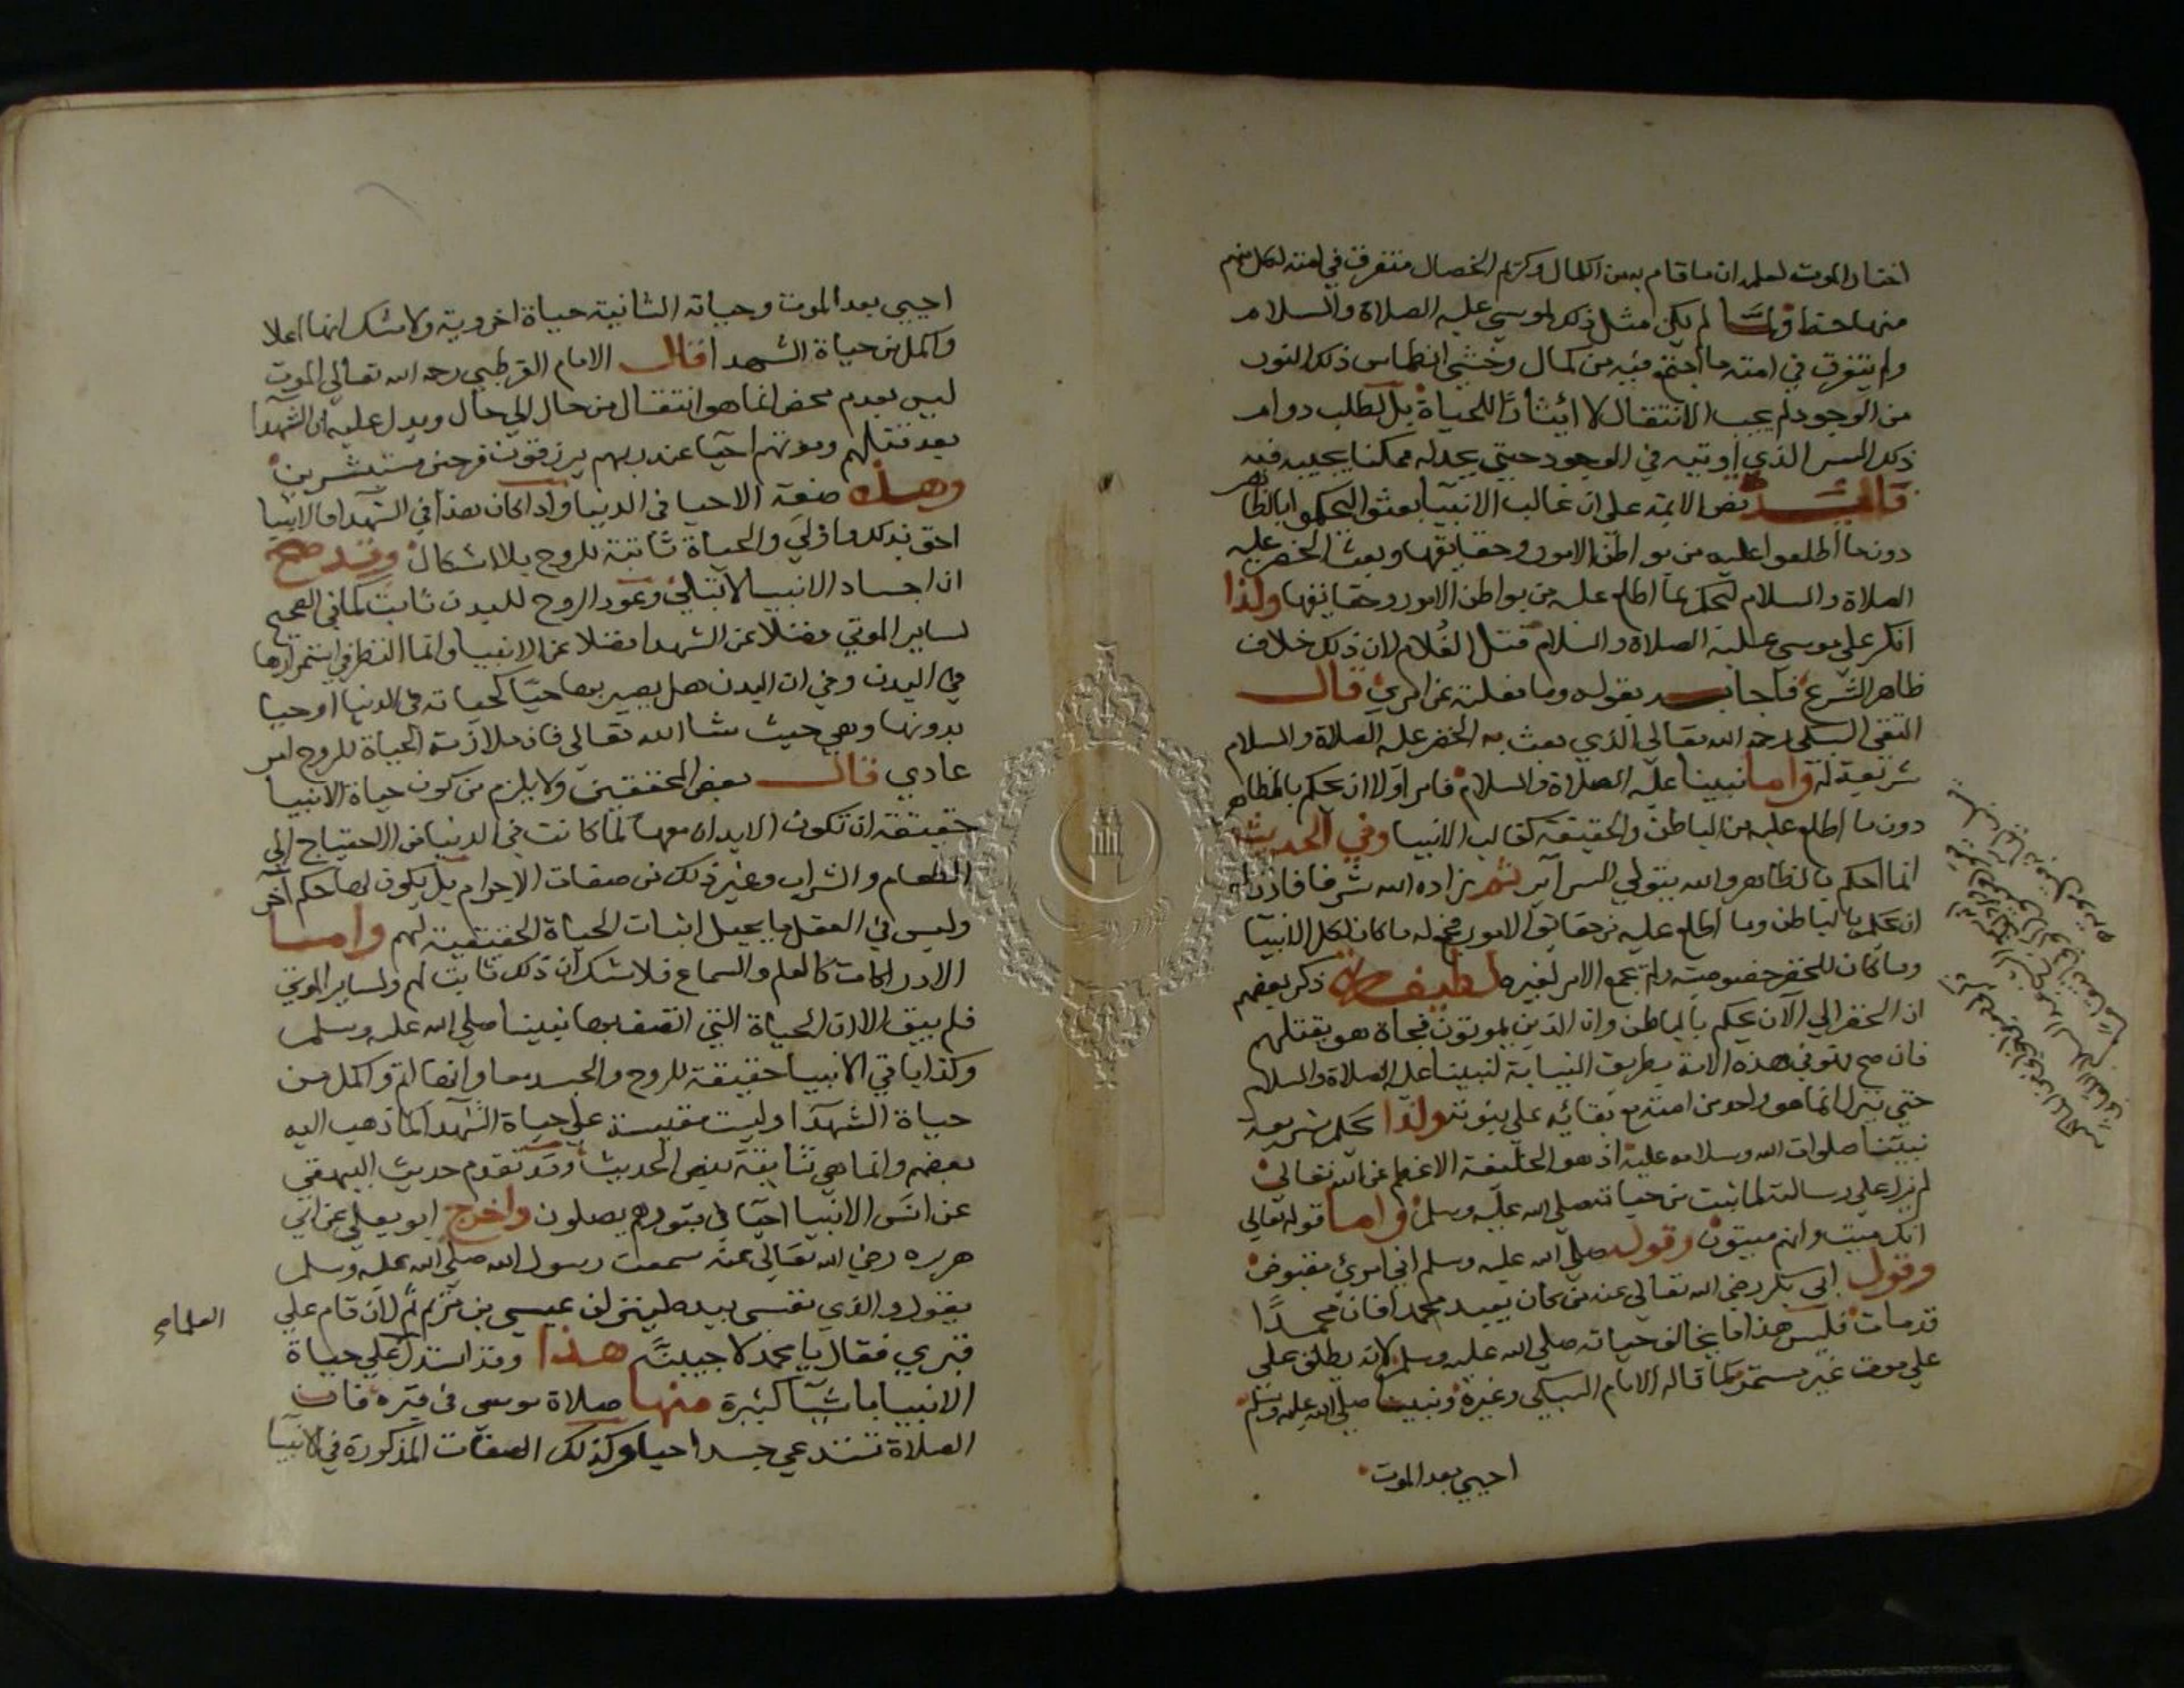 اختار الموت لعلمه ان ما قام به من الكمال وكريم الخصال متفرق في امته لكل منهم
منها حظ ولما لم يكن مثل ذلك لموسي عليه الصلاة والسلام
ولم يتفرق في امته ما اجتمع فيه من كمال وخشي انطماس ذلك النور
من الوجود لم يجب الانتقال لا ايثارًا للحياة بل لطلب دوام
ذكر السر الذي اوتيه في الوجود حتي يجد له ممكنا يجيبه فيه
نص الايمة علي ان غالب الانبيا بعثوا ليحكموا بالظاهر
دون ما اطلعوا عليه من بواطن الامور وحقايقها وبعث الخضر عليه
الصلاة والسلام ليحكم بما اطلع عليه من بواطن الامور وحقايقها ولذا
انكر علي موسي عليه الصلاة والسلام قتل الغلام لان ذلك خلاف
ظاهر الشرع فاجابه بقوله وما فعلته عن امري قال
التقي السبكي رحمه الله تعالي الذي بعث به الخضر عليه الصلاة والسلام
شريعة له واما نبينا عليه الصلاة والسلام فامر اولا ان يحكم بالظاهر
دون ما اطلع عليه من الباطن والحقيقة كغالب الانبيا وفي الحديث
انما احكم بالظاهر والله يتولي السراير ثم زاده الله شرفا فاذن له
ان يحكم بالباطن وما اطلع عليه من حقايق الامور فجمع له ما كان لكل الانبيا
وما كان للخضر خصوصية ولم يجمع الامر لغيره لطيفة ذكر بعضهم
ان الخضر الي الآن يحكم بالباطن وان الذين يموتون فجاة هو يقتلهم
فان صح فهو في هذه الامة بطريق النيابة لنبينا عليه الصلاة والسلام
حتي ينزل انما هو واحد من امته مع بقائه علي نبوته ولذا يحكم بشريعة
نبينا صلوات الله وسلامه عليه اذ هو الخليفة الاعظم عن الله تعالي
لم يزل علي رسالته لما ثبت من حياته صلي الله عليه وسلم واما قوله تعالي
انك ميت وانهم ميتون وقوله صلي الله عليه وسلم اني امرئ مقبوض
وقول ابي بكر رضي الله تعالي عنه من كان يعبد محمدا فان محمدًا
قد مات فليس هذا ما يخالف حياته صلي الله عليه وسلم لانه يطلق علي
علي موت غير مستمر كما قاله الامام السبكي وغيره ونبينا صلي الله عليه وسلم
احيي بعد الموت
احيي بعد الموت وحياته الثانية حياة اخروية ولا شك انها اعلا
واكمل من حياة الشهدا قال الامام القرطبي رحمه الله تعالي الموت
ليس بعدم محض انما هو انتقال من حال الي حال ويدل عليه ان الشهدا
بعد قتلهم وموتهم احيا عند ربهم يرزقون فرحين مستبشرين
وهذه صفة الاحيا في الدنيا واذا كان هذا في الشهدا فالانبيا
احق بذلك واولي والحياة ثابتة للروح بلا اشكال وقد صح
ان اجساد الانبيا لا تبلي وعود الروح للبدن ثابت كما في الصحيح
لساير الموتي فضلا عن الشهدا فضلا عن الانبيا وانما النظر في استمرارها
في البدن وفي ان البدن هل يصير بها حيًا كحياته في الدنيا او حيا
بدونها وهي حيث شا الله تعالي فان ملازمة الحياة للروح امر
عادي قال بعض المحققين ولا يلزم من كون حياة الانبيا
حقيقة ان تكون الابدان معها كما كانت في الدنيا من الاحتياج الي
الطعام والشراب وغير ذلك من صفات الاجرام بل يكون لها حكم آخر
وليس في العقل ما يحيل اثبات الحياة الحقيقية لهم واما
الادراكات كالعلم والسماع فلا شك ان ذلك ثابت لهم ولساير الموتي
فلم يبق الا ان الحياة التي اتصف بها نبينا صلي الله عليه وسلم
وكذا باقي الانبيا حقيقة للروح والجسد معا وانها اتم واكمل من
حياة الشهدا وليست مقيسة علي حياة الشهدا كما ذهب اليه
بعضهم وانما هي ثابتة بنص الحديث وقد تقدم حديث البيهقي
عن انس الانبيا احيا في قبورهم يصلون واخرج ابو يعلي عن ابي
هريره رضي الله تعالي عنه سمعت رسول الله صلي الله عليه وسلم
يقول والذي نفسي بيده لينزلن عيسي بن مريم ثم لان قام علي
قبري فقال يا محمد لاجيبنه هذا وقد استدل علي حياة
العلماء
الانبيا باشيآ كثيرة منها صلاة موسي في قبره فان
الصلاة تستدعي جسدا حيا وكذلك الصفات المذكورة في الانبيا